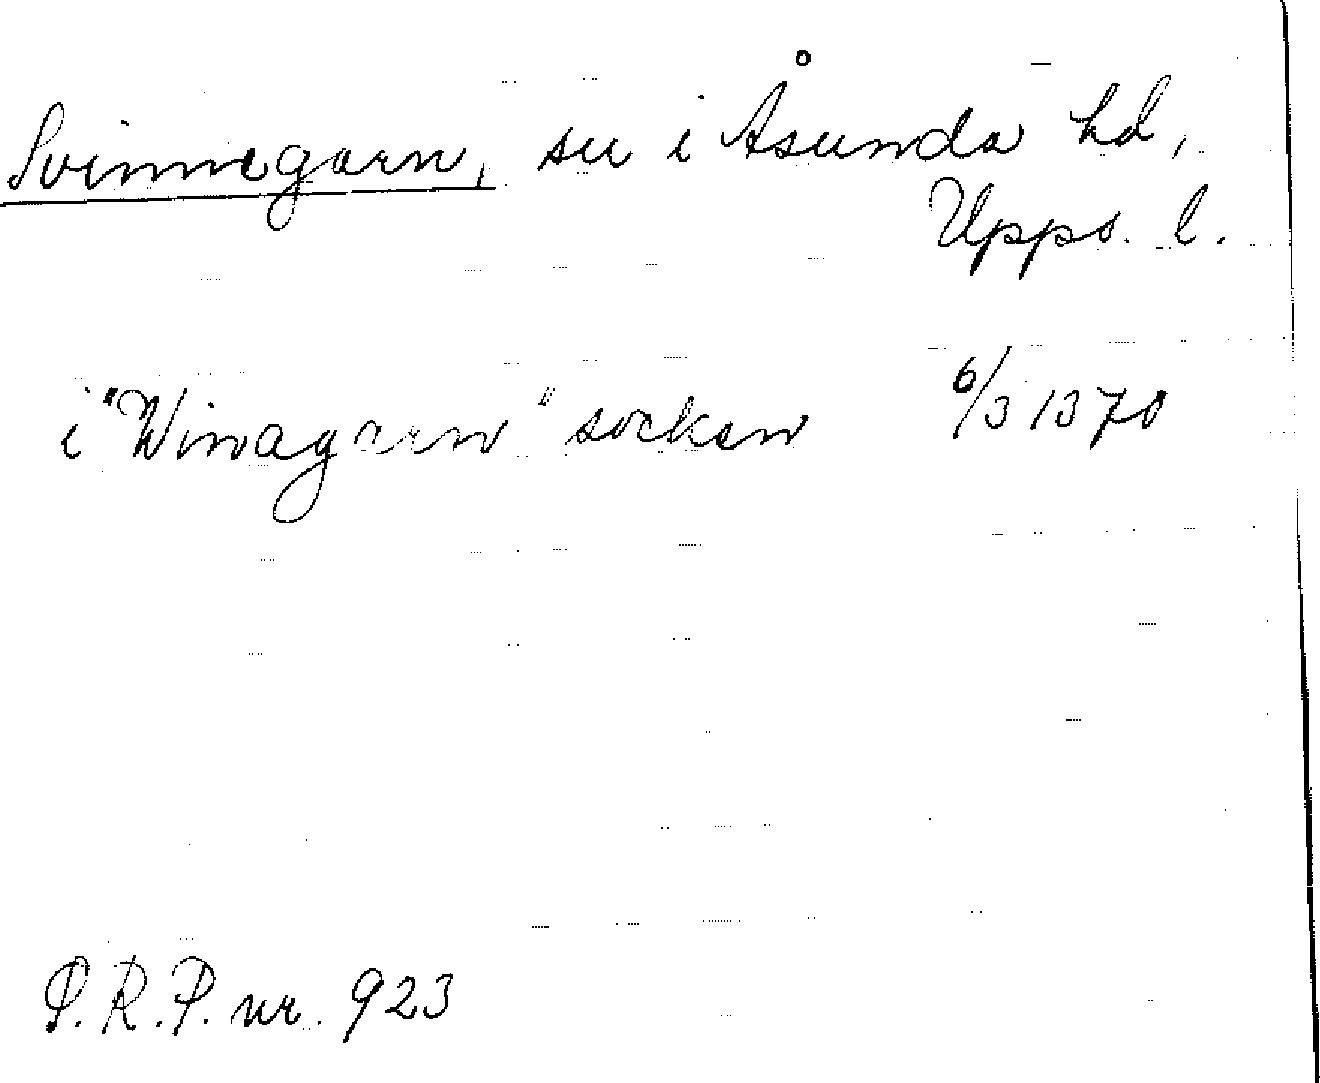 Svinnegarn, sn i Åsunda hd,
Upps. l.
i "Winagarn" socken 6/3 1370
S.R.P. nr. 923